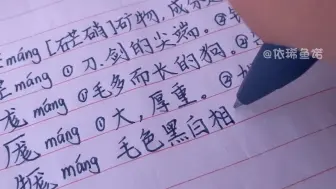 máng [芒硝]矿物,成分
@依稀鱼诺
máng ① 刀、剑的尖端。②
máng ① 毛多而长的狗。②
厖 máng ① 大,厚重。②
máng 毛色黑白相